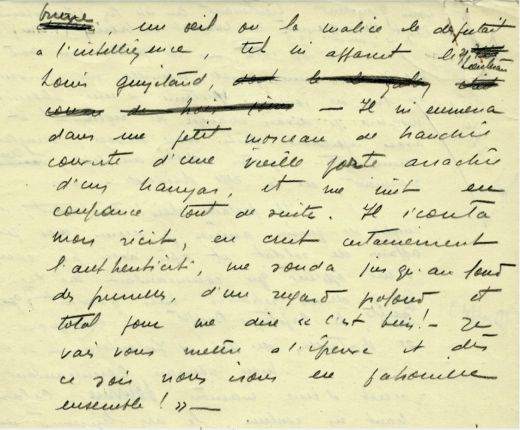 , un oeil où la malice le disputait
à l'intelligence, tel m'apparut le
Louis Guyitand — Il m'emmena
dans un petit morceau de tranchée
couverte d'une vieille porte arrachée
d'un hangar, et me mit en
confiance tout de suite. Il écouta
mon récit, en crut certainement
l'authenticité, me sonda jusqu'au fond
des prunelles, d'un regard profond et
total pour me dire « c'est bien! — Je
vais vous mettre à l'épreuve et dès
ce soir nous irons en patrouille
ensemble! » —